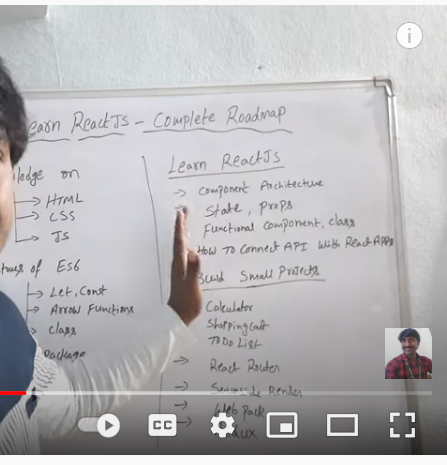 earn ReactJs - Complete Roadmap
ledge on
HTML
CSS
JS
tures of ES6
Let, Const
Arrow Functions
class
Package
Learn ReactJs
Component Architecture
State, Props
Functional Component, class
How To Connect API With React APPs
Build Small Projects
Calculator
Shopping Cart
To Do List
React Router
Render
Web Pack
CC
i